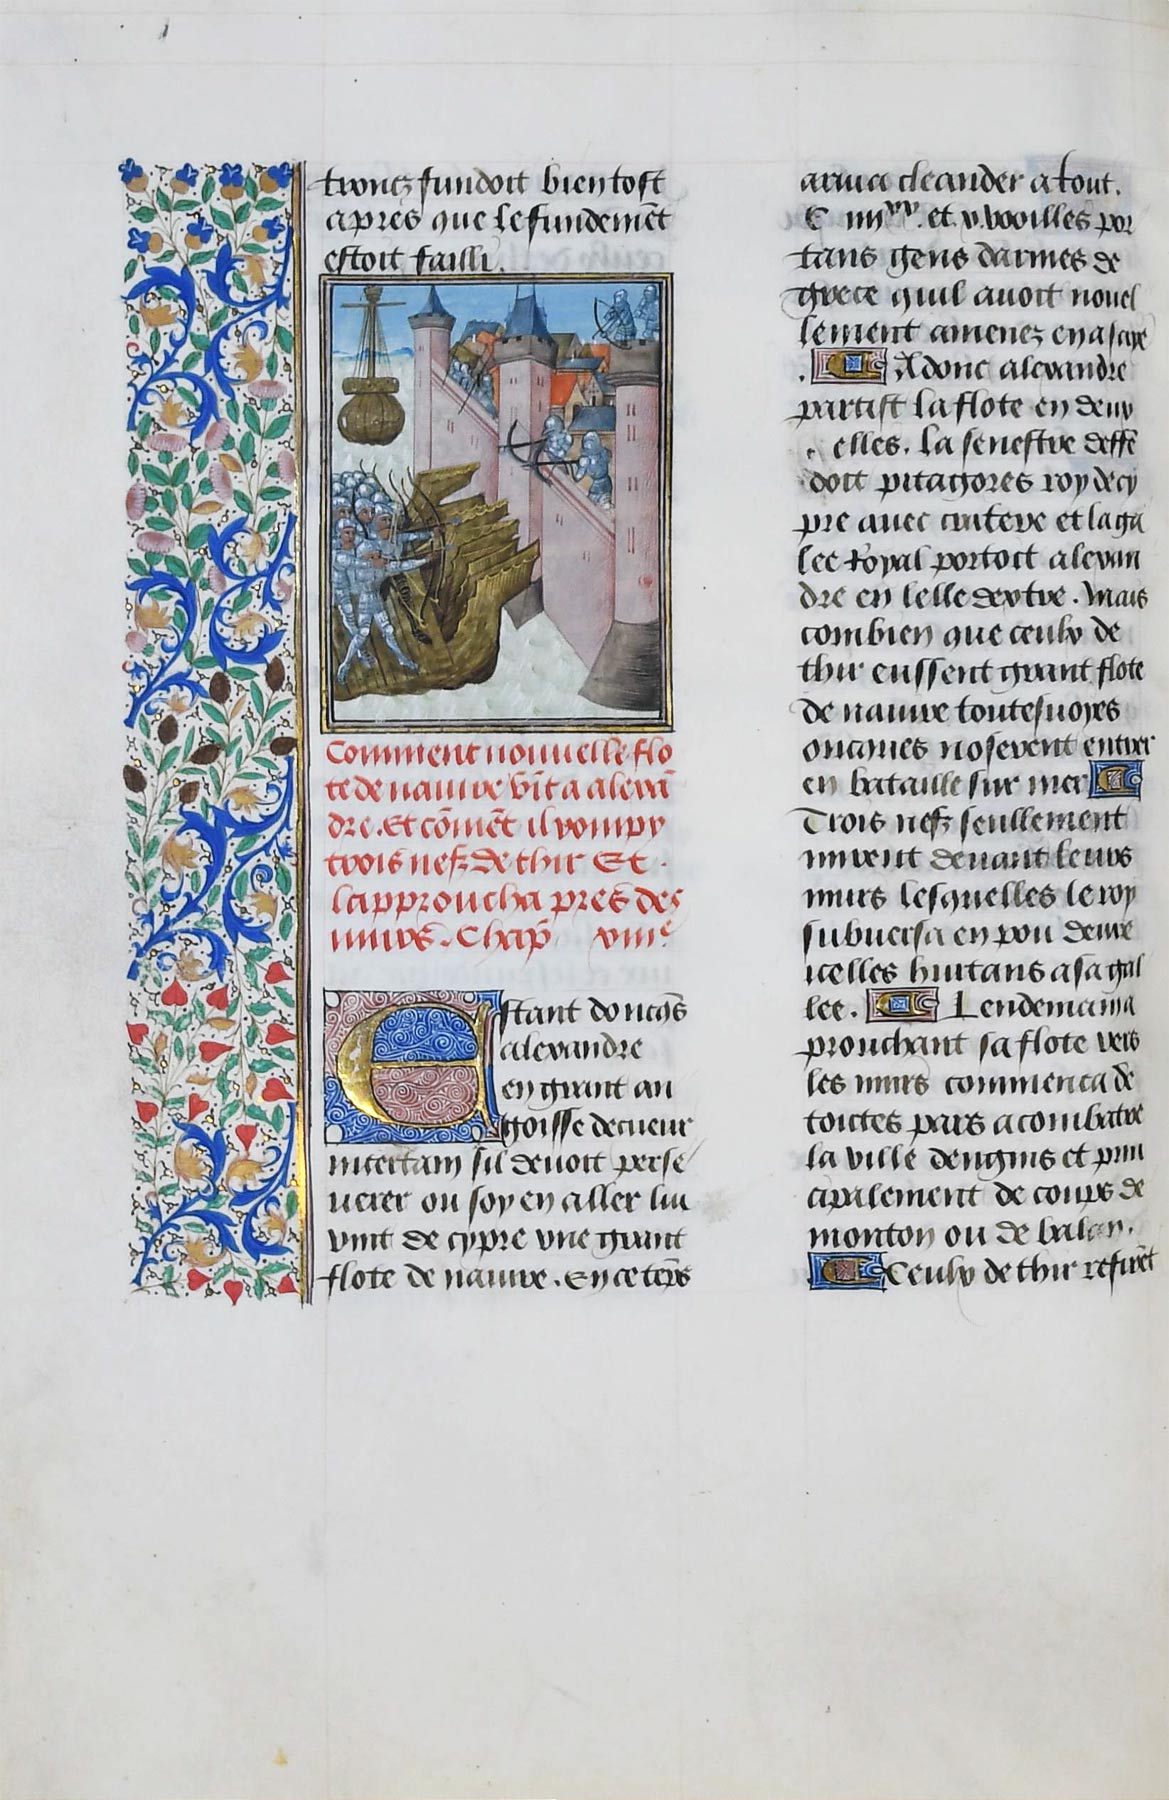 tronez fundoit bien tost
apres que le fundemēt
estoit failli.
Comment nouvelle flo
te de navire vīt a alexā
dre. Et cōmēt il rompy
trois nefz de thir Et
lapproucha pres des
murs. Chapͬ viiiͤ
Estant doncq̄s
alexandre
en grant an
goisse de cueur
incertain sil devoit perse
verer ou soy en aller luy
vint de cypre vne grant
flote de navire. En ce tēps
ariva cleander a tout.
C iiiiˣˣ. et x. voilles por
tans gens darmes de
grece quil avoit nouvel
lement amenez en asaye
. Adonc alexandre
partist la flote en deux
elles. la senestre deffē
doit pitagores roy de cy
pre avec cratere et la ga
lee Royal portoit alexan
dre en lelle dextre. Mais
combien que ceulx de
thir eussent grant flote
de navire toutesvoyes
oncques noserent entrer
en bataille sur mer
Trois nefz seullement
mirent devant leurs
murs lesquelles le roy
subversa en pou deure
icelles hurtans a sa gal
lee. Lendemain a
prouchant sa flote vers
les murs commenca de
toutes pars a combatre
la ville dengins et prin
cipalement de coups de
monton ou de balan.
Ceulx de thir refirēt